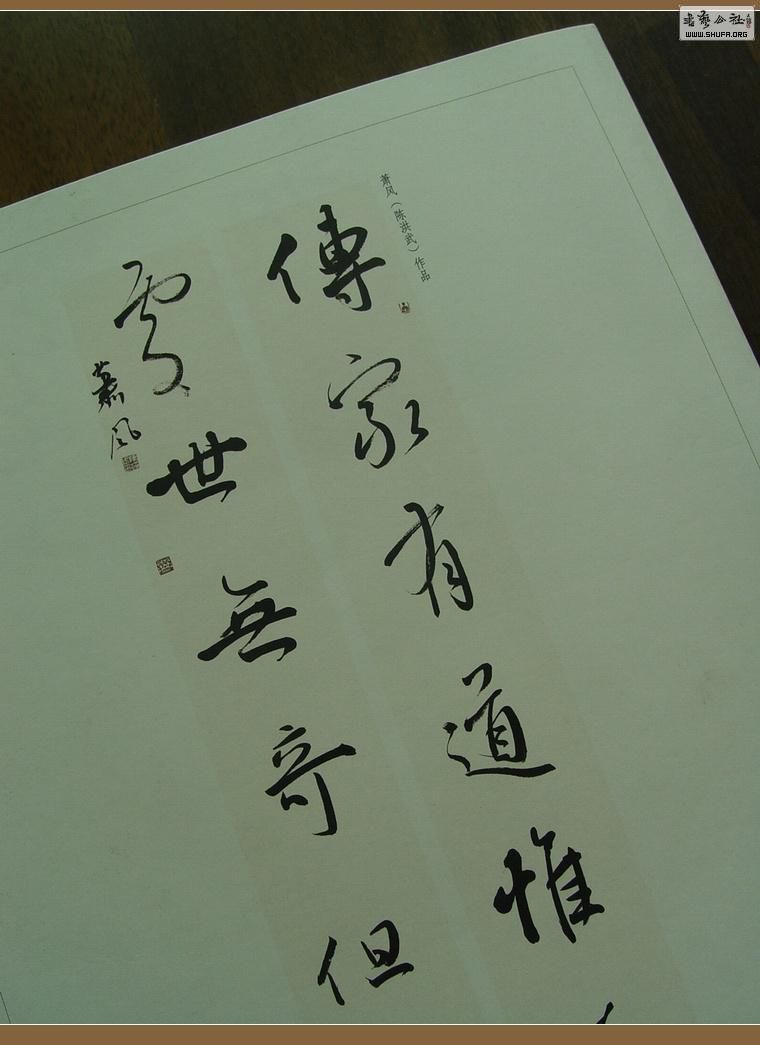 書藝公社
WWW.SHUFA.ORG
萧风（陈洪武）作品
傳家有道惟
處世無奇但
蕭風